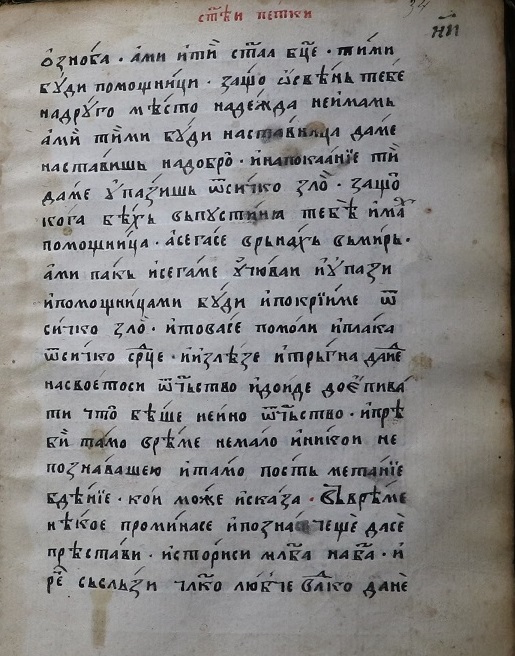 ст҃ѣи петки
34
н҃и
ѻзноба · ами и́тїи ст҃аа бц҃е · тими
буди помощници · защо ѡсвѣнь тебе
надруго мѣсто надежда неимамь
ами́ ти́ми буди наставница даме
наставишь надобро̀ · инапокаанїе ти
даме упазишь ѿсичко зло̀ · защо̀
кога бѣхь въпустинꙗ тебѣ има
помощница · асегасе врьнахь вьмирь ·
ами пакь исегаме учювай иупази
ипомощницами буди ипокрїиме ѿ
сичко зло̀ · итовасе помоли иплака
ѿсичко ср҃це · иизлѣзе итрьгна дане
насвоетоси ѿчьство идоиде доепива
ти что бѣше нейно ѿчьство · ипрѣ
би тамо врѣме немало иникои не
познавашею итамо пость метанїе
бдѣнїе · кои може исказа · Вьврѣме
нѣкое проминасе ипозна чеще дасе
прѣстави · историси мл҃ба на б҃а · и
рѐ сьсльзи чл҃ко любче вл҃ко дане